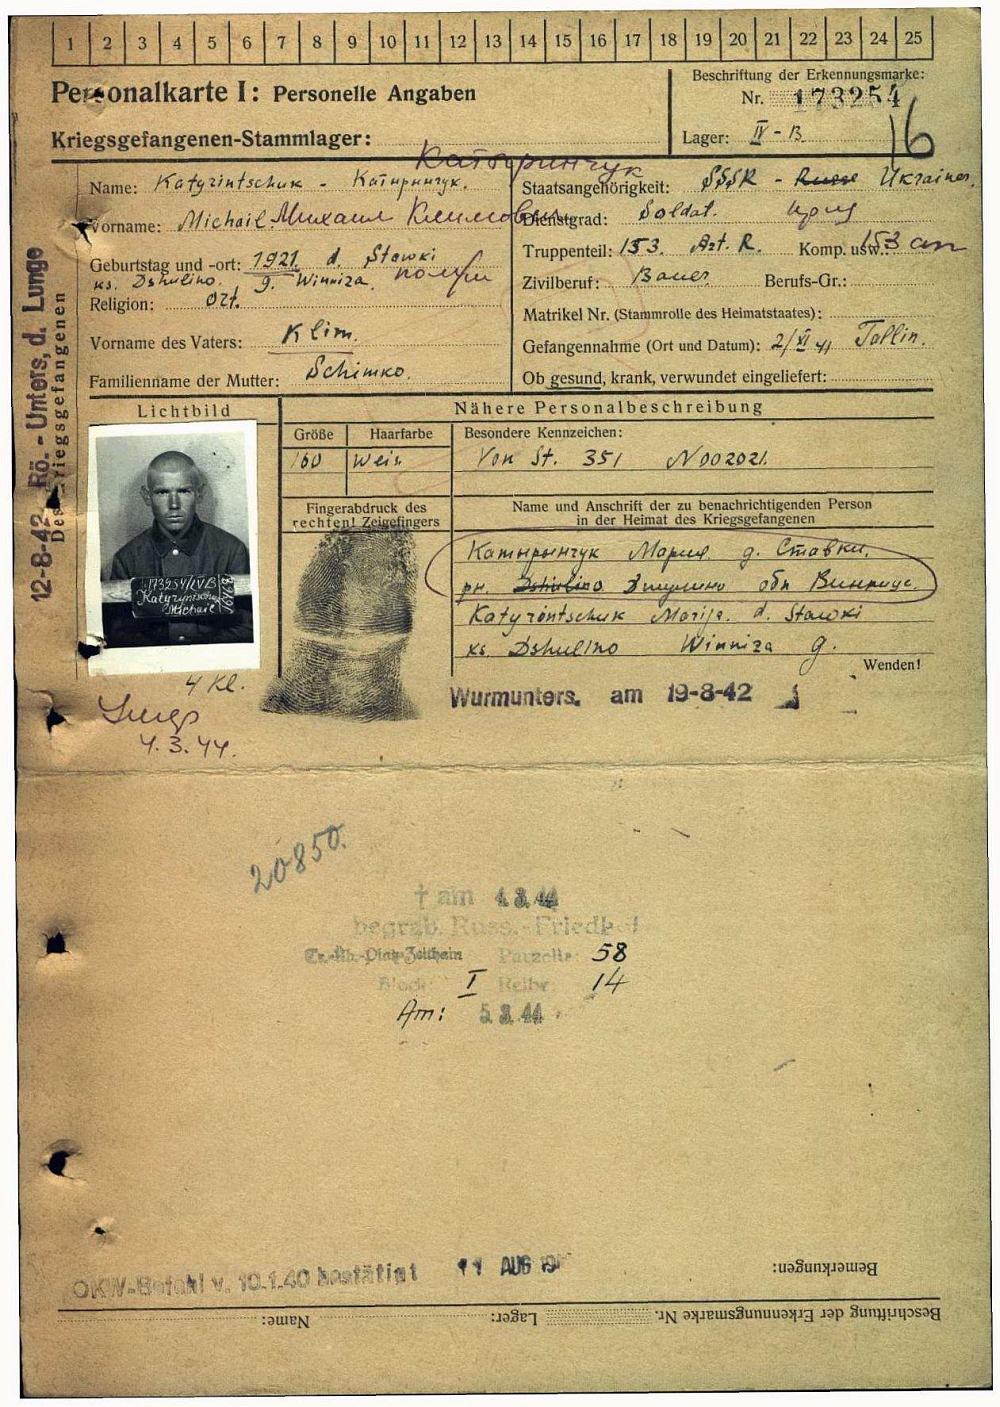 1 2 3 4 5 6 7 8 9 10 11 12 13 14 15 16 17 18 19 20 21 22 23 24 25
Personalkarte I: Personelle Angaben
Kriegsgefangenen-Stammlager:
Beschriftung der Erkennungsmarke:
Nr. 173254
Lager: IV-B
16
Катыринчук
Name: Katyrintschuk - Катыринчук.
Vorname: Michail. Михаил Климович
Geburtstag und -ort: 1921 d. Stawki
ks. Dshulino. g. Winniza.
Religion: Ort.
Vorname des Vaters: Klim.
Familienname der Mutter: Schimko.
Staatsangehörigkeit: SSSR - Russe Ukrainer.
Dienstgrad: Soldat.
Truppenteil: 153. Art. R. Komp. usw.: 153 ап
Zivilberuf: Bauer Berufs-Gr.:
Matrikel Nr. (Stammrolle des Heimatstaates):
Gefangennahme (Ort und Datum): 2/XI 41 Tallin.
Ob gesund, krank, verwundet eingeliefert:
12-8-42 Rö.-Unters. d. Lunge
Des Kriegsgefangenen
Lichtbild
Nähere Personalbeschreibung
Größe Haarfarbe Besondere Kennzeichen:
160 Weis Von St. 351 N002021.
Fingerabdruck des
rechten! Zeigefingers
Name und Anschrift der zu benachrichtigenden Person
in der Heimat des Kriegsgefangenen
Катыринчук Мария д. Ставки.
рн. Dshulino Джулино обл Винница.
Katyrintschuk Marija. d. Stawki
ks. Dshulino Winniza g.
Wenden!
173254/IVB
Katyrintschuk
Michail
4 Kl.
Wurmunters. am 19-8-42
4.3.44.
20850.
† am 4.3.44
begrab. Russ.-Friedhof
Tr.-Üb.-Platz Zeithain Parzelle: 58
Block: I Reihe 14
Am: 5.3.44
OKW-Befehl v. 10.1.40 bestätigt 11 AUG 19
Bemerkungen:
Beschriftung der Erkennungsmarke Nr. Lager: Name: